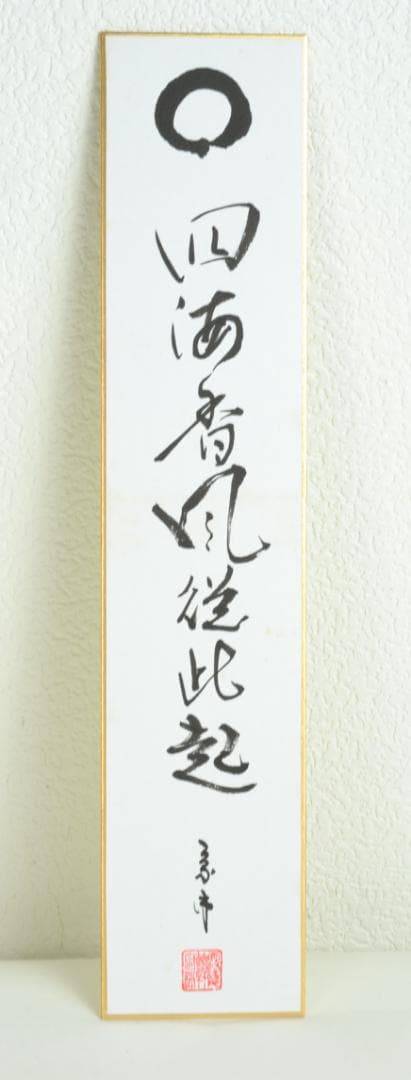 四海香風従此起